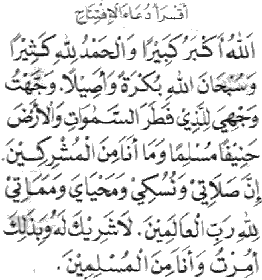 أقرأ دعاء الإفتتاح
اَللهُ أَكْبَرُ كَبِيْرًا وَالْحَمْدُ لِلّٰهِ كَثِيْرًا
وَسُبْحَانَ اللهِ بُكْرَةً وَأَصِيْلًا. وَجَّهْتُ
وَجْهِيَ لِلَّذِيْ فَطَرَ السَّمٰوَاتِ وَالْأَرْضَ
حَنِيْفًا مُسْلِمًا وَمَا أَنَا مِنَ الْمُشْرِكِيْنَ.
إِنَّ صَلَاتِيْ وَنُسُكِيْ وَمَحْيَايَ وَمَمَاتِيْ
لِلّٰهِ رَبِّ الْعَالَمِيْنَ. لَا شَرِيْكَ لَهُ وَبِذٰلِكَ
أُمِرْتُ وَأَنَا مِنَ الْمُسْلِمِيْنَ.